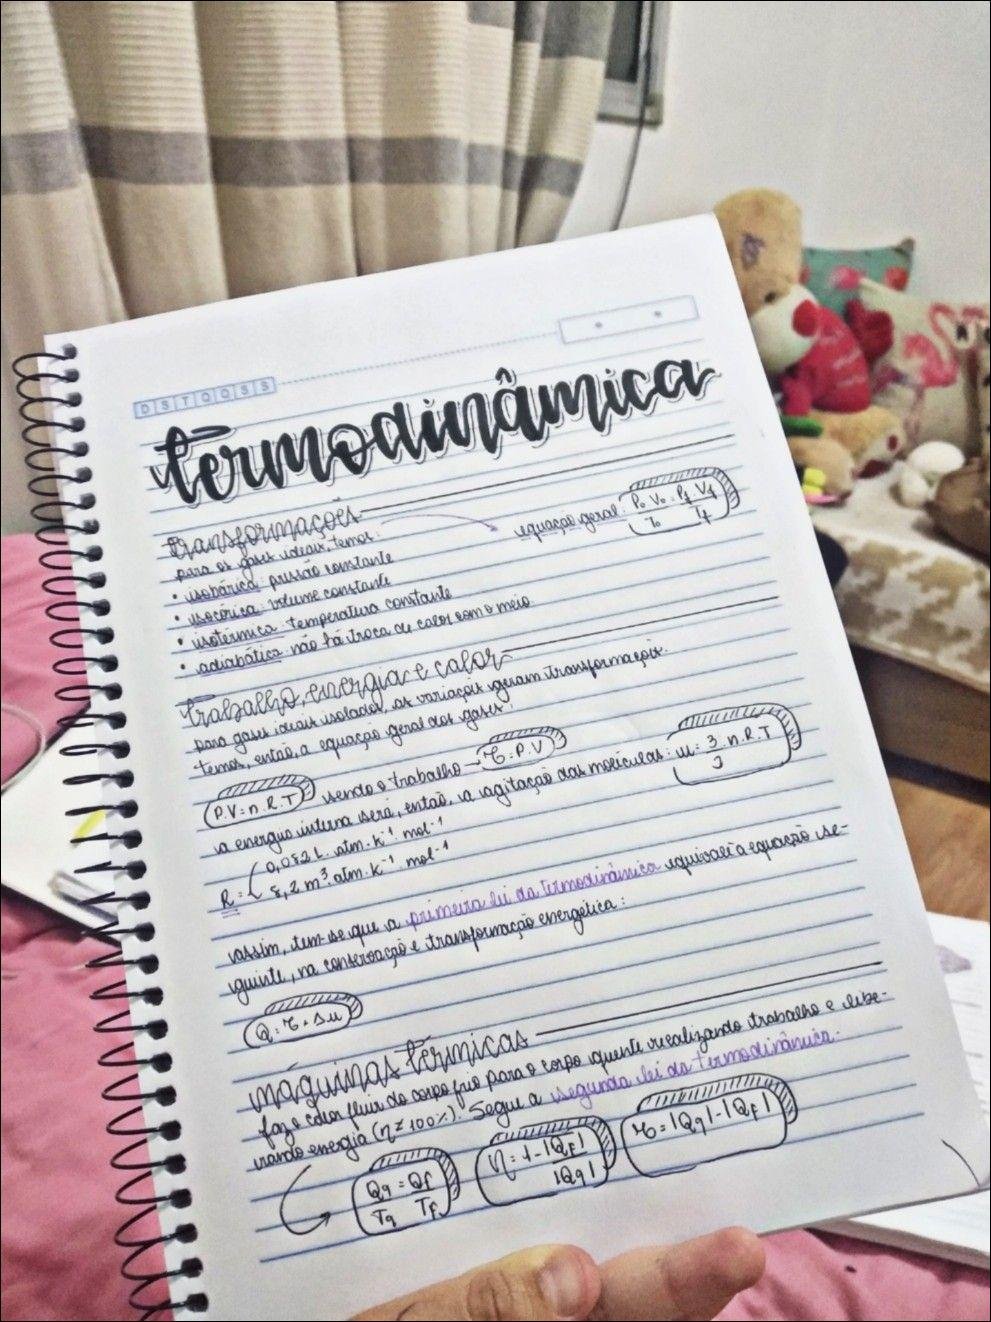 D S T Q Q S S
termodinâmica
transformações
para os gases ideais, temos:
equação geral: P₀.V₀ = Pf.Vf
T₀ Tf
• isobárica: pressão constante
• isocórica: volume constante
• isotérmica: temperatura constante
• adiabática: não há troca de calor com o meio
trabalho, energia e calor
para gases ideais isolados, as variações geram transformações.
temos, então, a equação geral dos gases:
P.V = n.R.T sendo o trabalho → τ = P.V
a energia interna será, então, a agitação das moléculas: u = 3.n.R.T
R = 0,082 L . atm . k⁻¹ . mol⁻¹
8,2 m³ . atm . k⁻¹ mol⁻¹
assim, tem-se que a primeira lei da termodinâmica equivale a equação se-
guinte, na conservação e transformação energética:
Q = τ + Δu
máquinas térmicas
faz o calor fluir do corpo frio para o corpo quente realizando trabalho e libe-
rando energia (η ≠ 100%). Segue a segunda lei da termodinâmica.
Qq = Qf
Tq Tf
η = 1 - |Qf|
|Qq|
τ = |Qq| - |Qf|